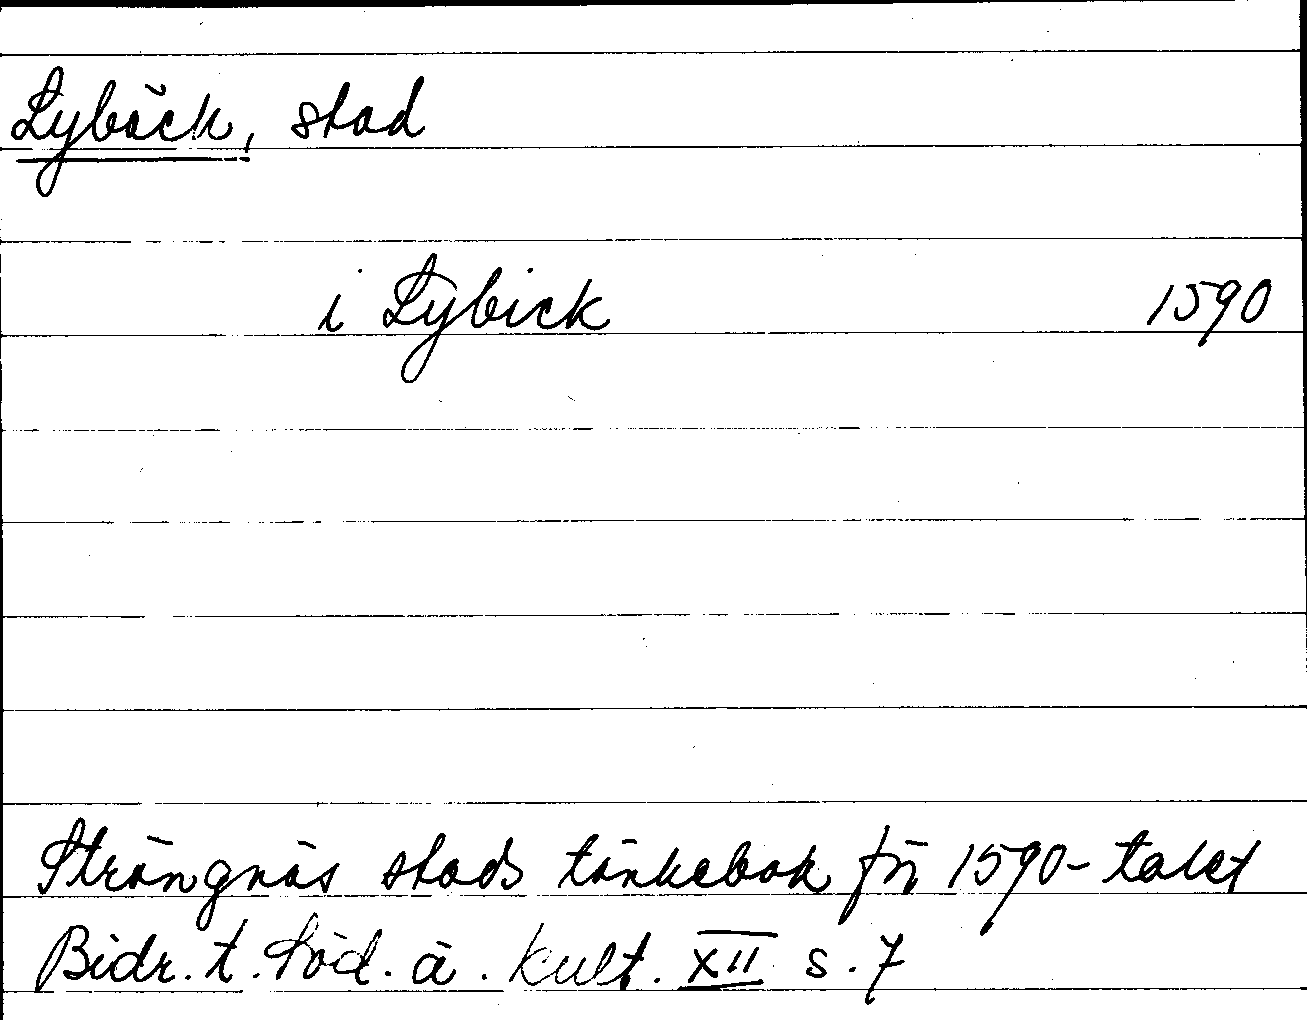 Lybäck, stad
i Lÿbick 1590
Strängnäs stads tänkebok för 1590-talet
Bidr. t. Söd. ä. kult. XII s. 7